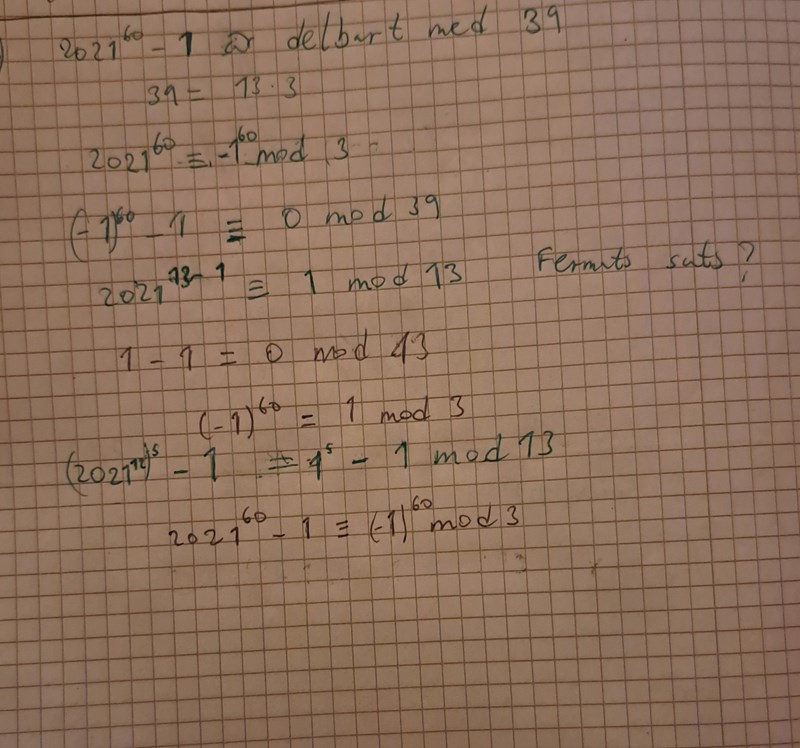 2021^60 - 1 är delbart med 39
39 = 13·3
2021^60 ≡ -1^60 mod 3
(-1)^60 - 1 ≡ 0 mod 39
2021^13-1 ≡ 1 mod 13 Fermats sats?
1 - 1 = 0 mod 13
(-1)^60 = 1 mod 3
(2021^12)^5 - 1 ≡ 1^5 - 1 mod 13
2021^60 - 1 ≡ (-1)^60 mod 3